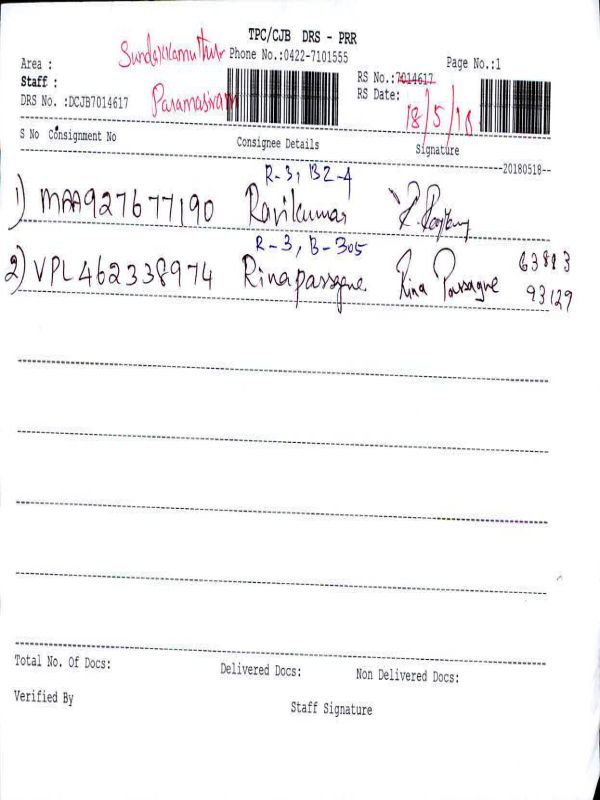 TPC/CJB DRS - PRR
Area : Sundakkamuthur Phone No.:0422-7101555 Page No.:1
Staff : Paramasivam RS No.:7014617
DRS No. :DCJB7014617 RS Date: 18/5/18
S No Consignment No Consignee Details Signature
--20180518--
R-3, B2-4
1) MAA927677190 Ravikumar
R-3, B-305
2) VPL462338974 Rinapassagne Rina Passagne 63813
93129
Total No. Of Docs: Delivered Docs: Non Delivered Docs:
Verified By Staff Signature